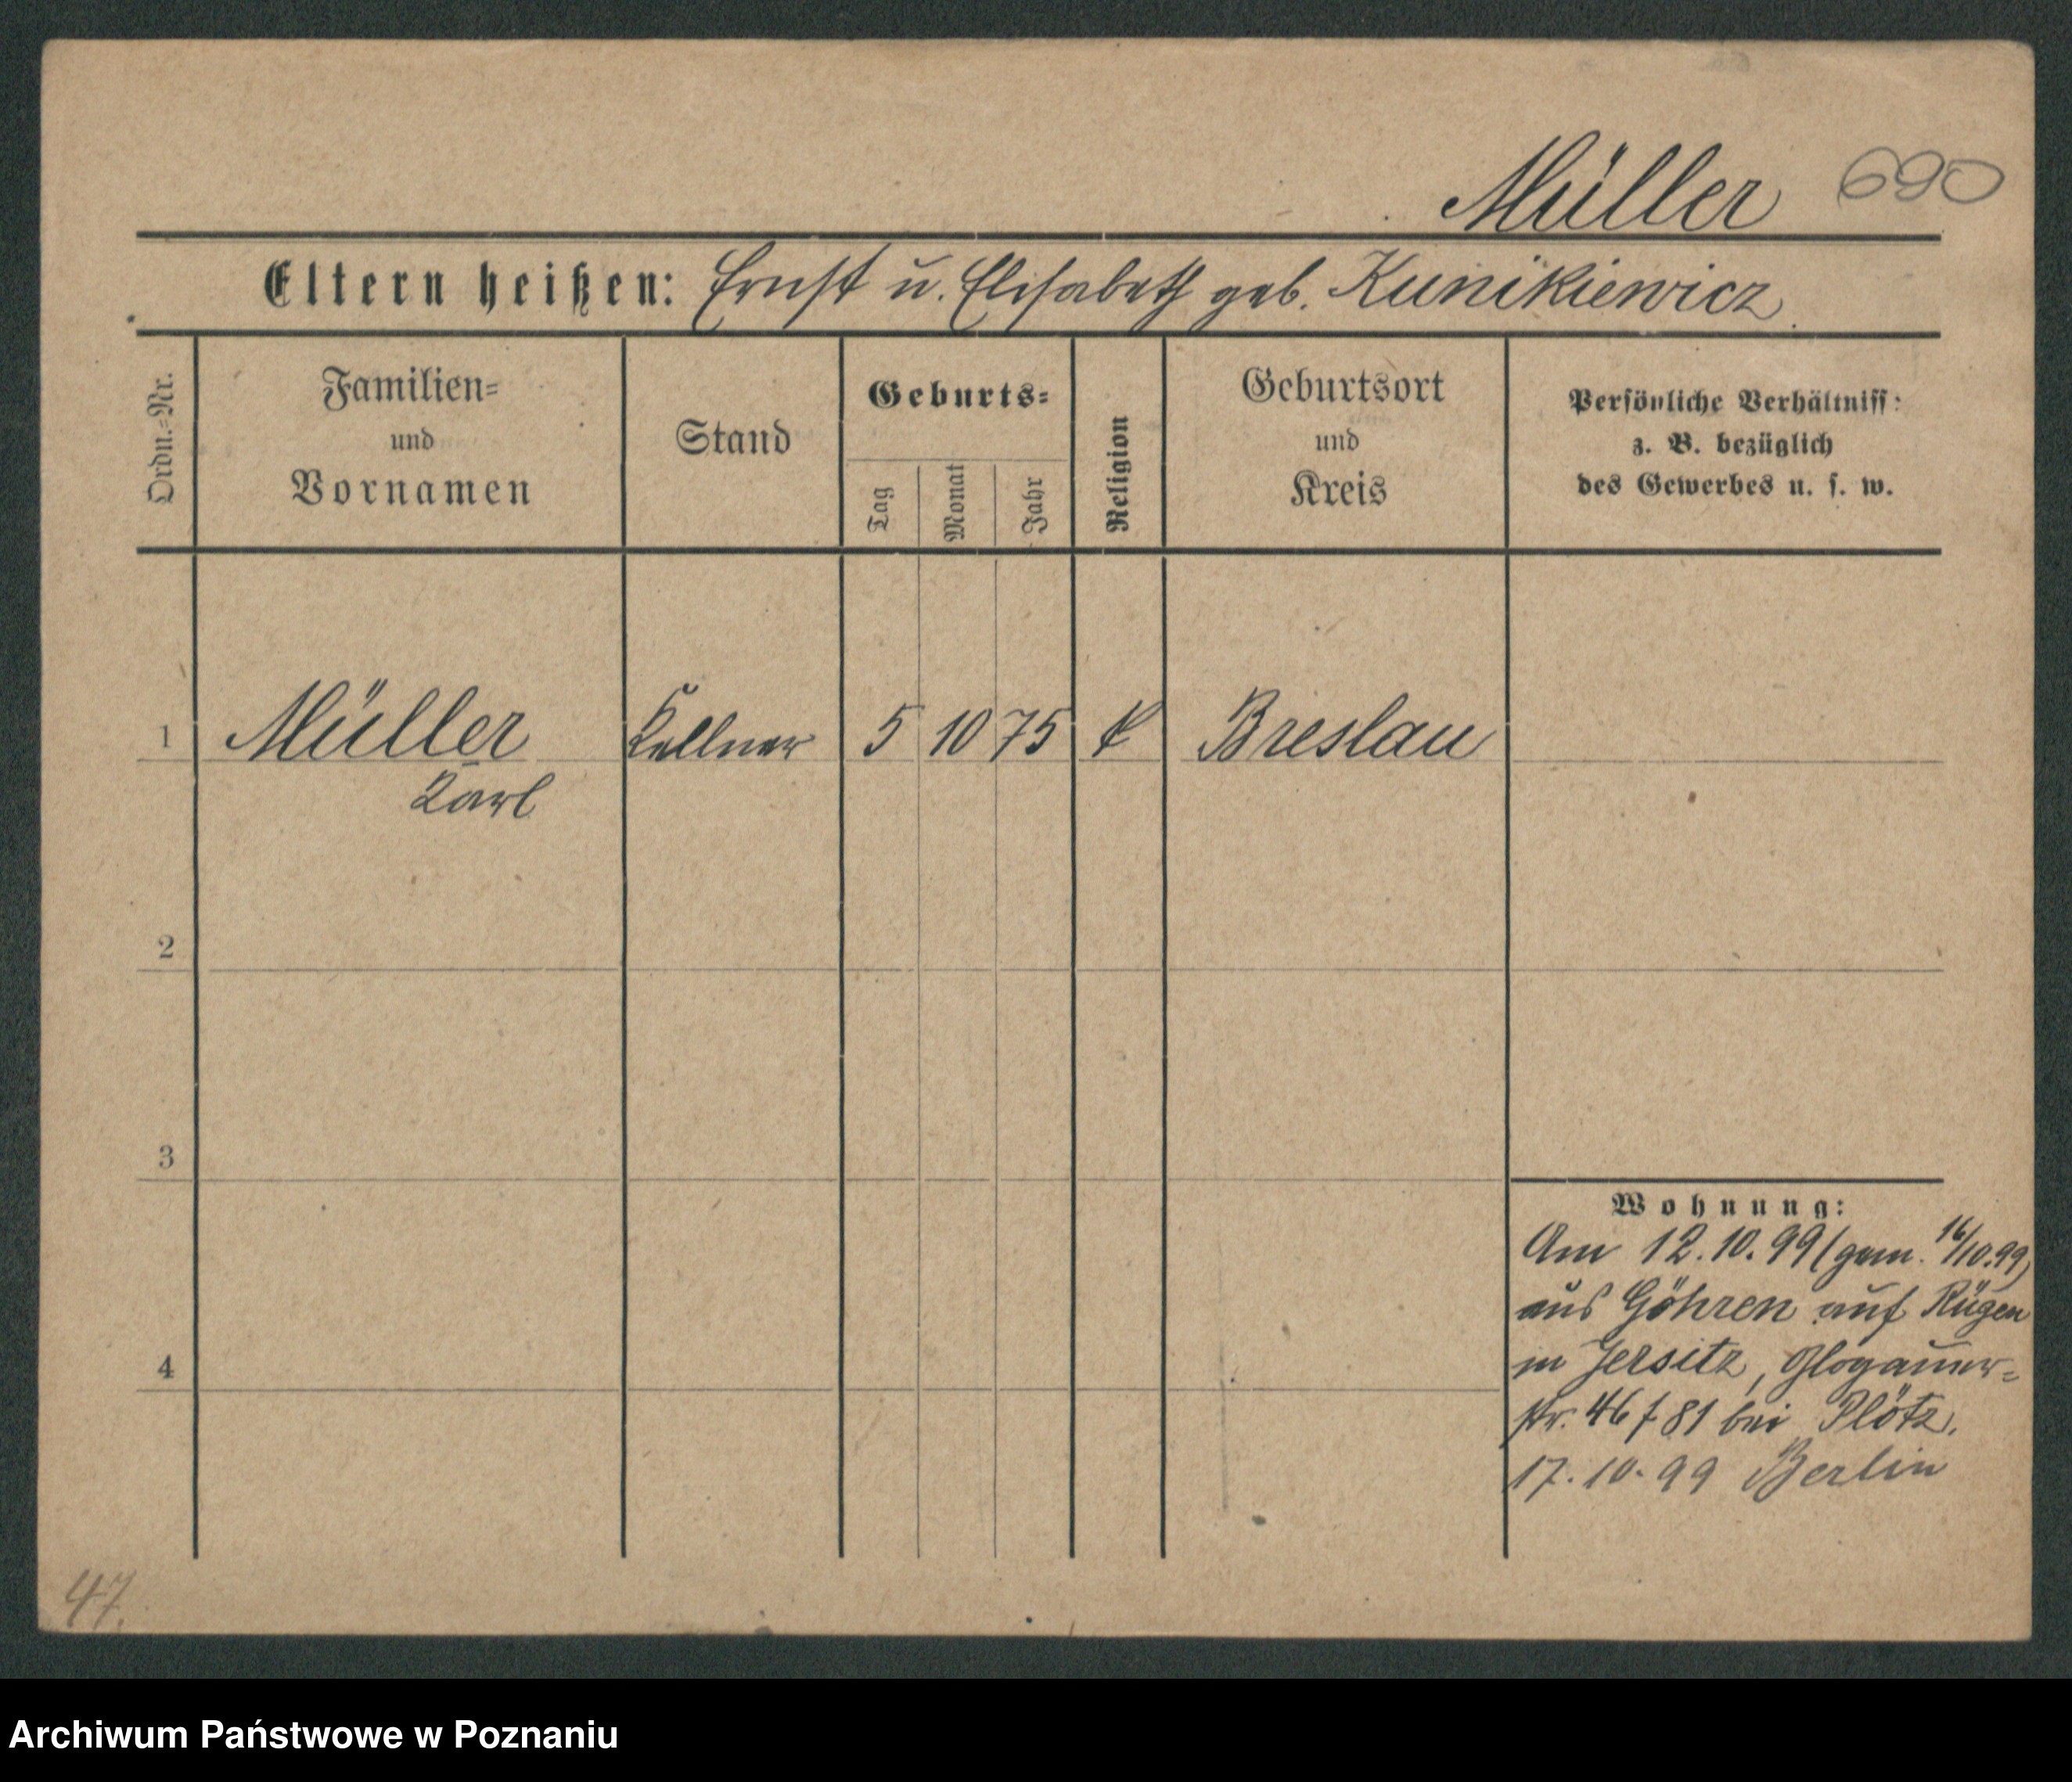 Müller 690
Eltern heißen: Ernst u. Elisabeth geb. Kunikiewicz
Ordn.=Nr.
Familien=
und
Vornamen
Stand
Geburts=
Tag
Monat
Jahr
Religion
Geburtsort
und
Kreis
Persönliche Verhältniss:
z. B. bezüglich
des Gewerbes u. s. w.
1 Müller Kellner 5 10 75 k Breslau
Karl
2
3
Wohnung:
Am 12.10.99 (gem. 16/10.99)
aus Göhren auf Rügen
in Jersitz, Glogauer=
4
str. 46 f 81 bei Plötz.
17.10.99 Berlin
47.
Archiwum Państwowe w Poznaniu